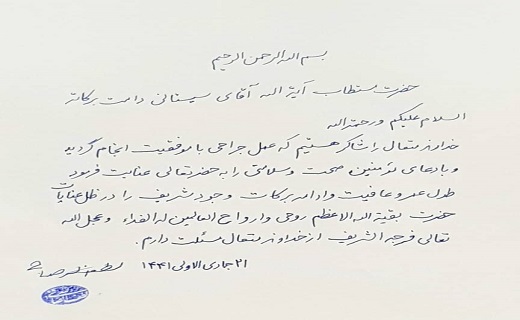 بسم الله الرحمن الرحیم
حضرت مستطاب آیة الله آقای سیستانی دامت برکاته
السلام علیکم ورحمة الله
خداوند متعال را شاکر هستیم که عمل جراحی با موفقیت انجام گردید
و با دعای مؤمنین صحت و سلامتی را به حضرتعالی عنایت فرمود
طول عمر و عافیت و ادامه برکات وجود شریف را در ظل عنایات
حضرت بقیة الله الاعظم روحی وارواح العالمین له الفداء وعجل الله
تعالی فرجه الشریف از خداوند متعال مسئلت دارم.
۲۱ جمادی الاولی ۱۴۴۱ لطف الله صافی